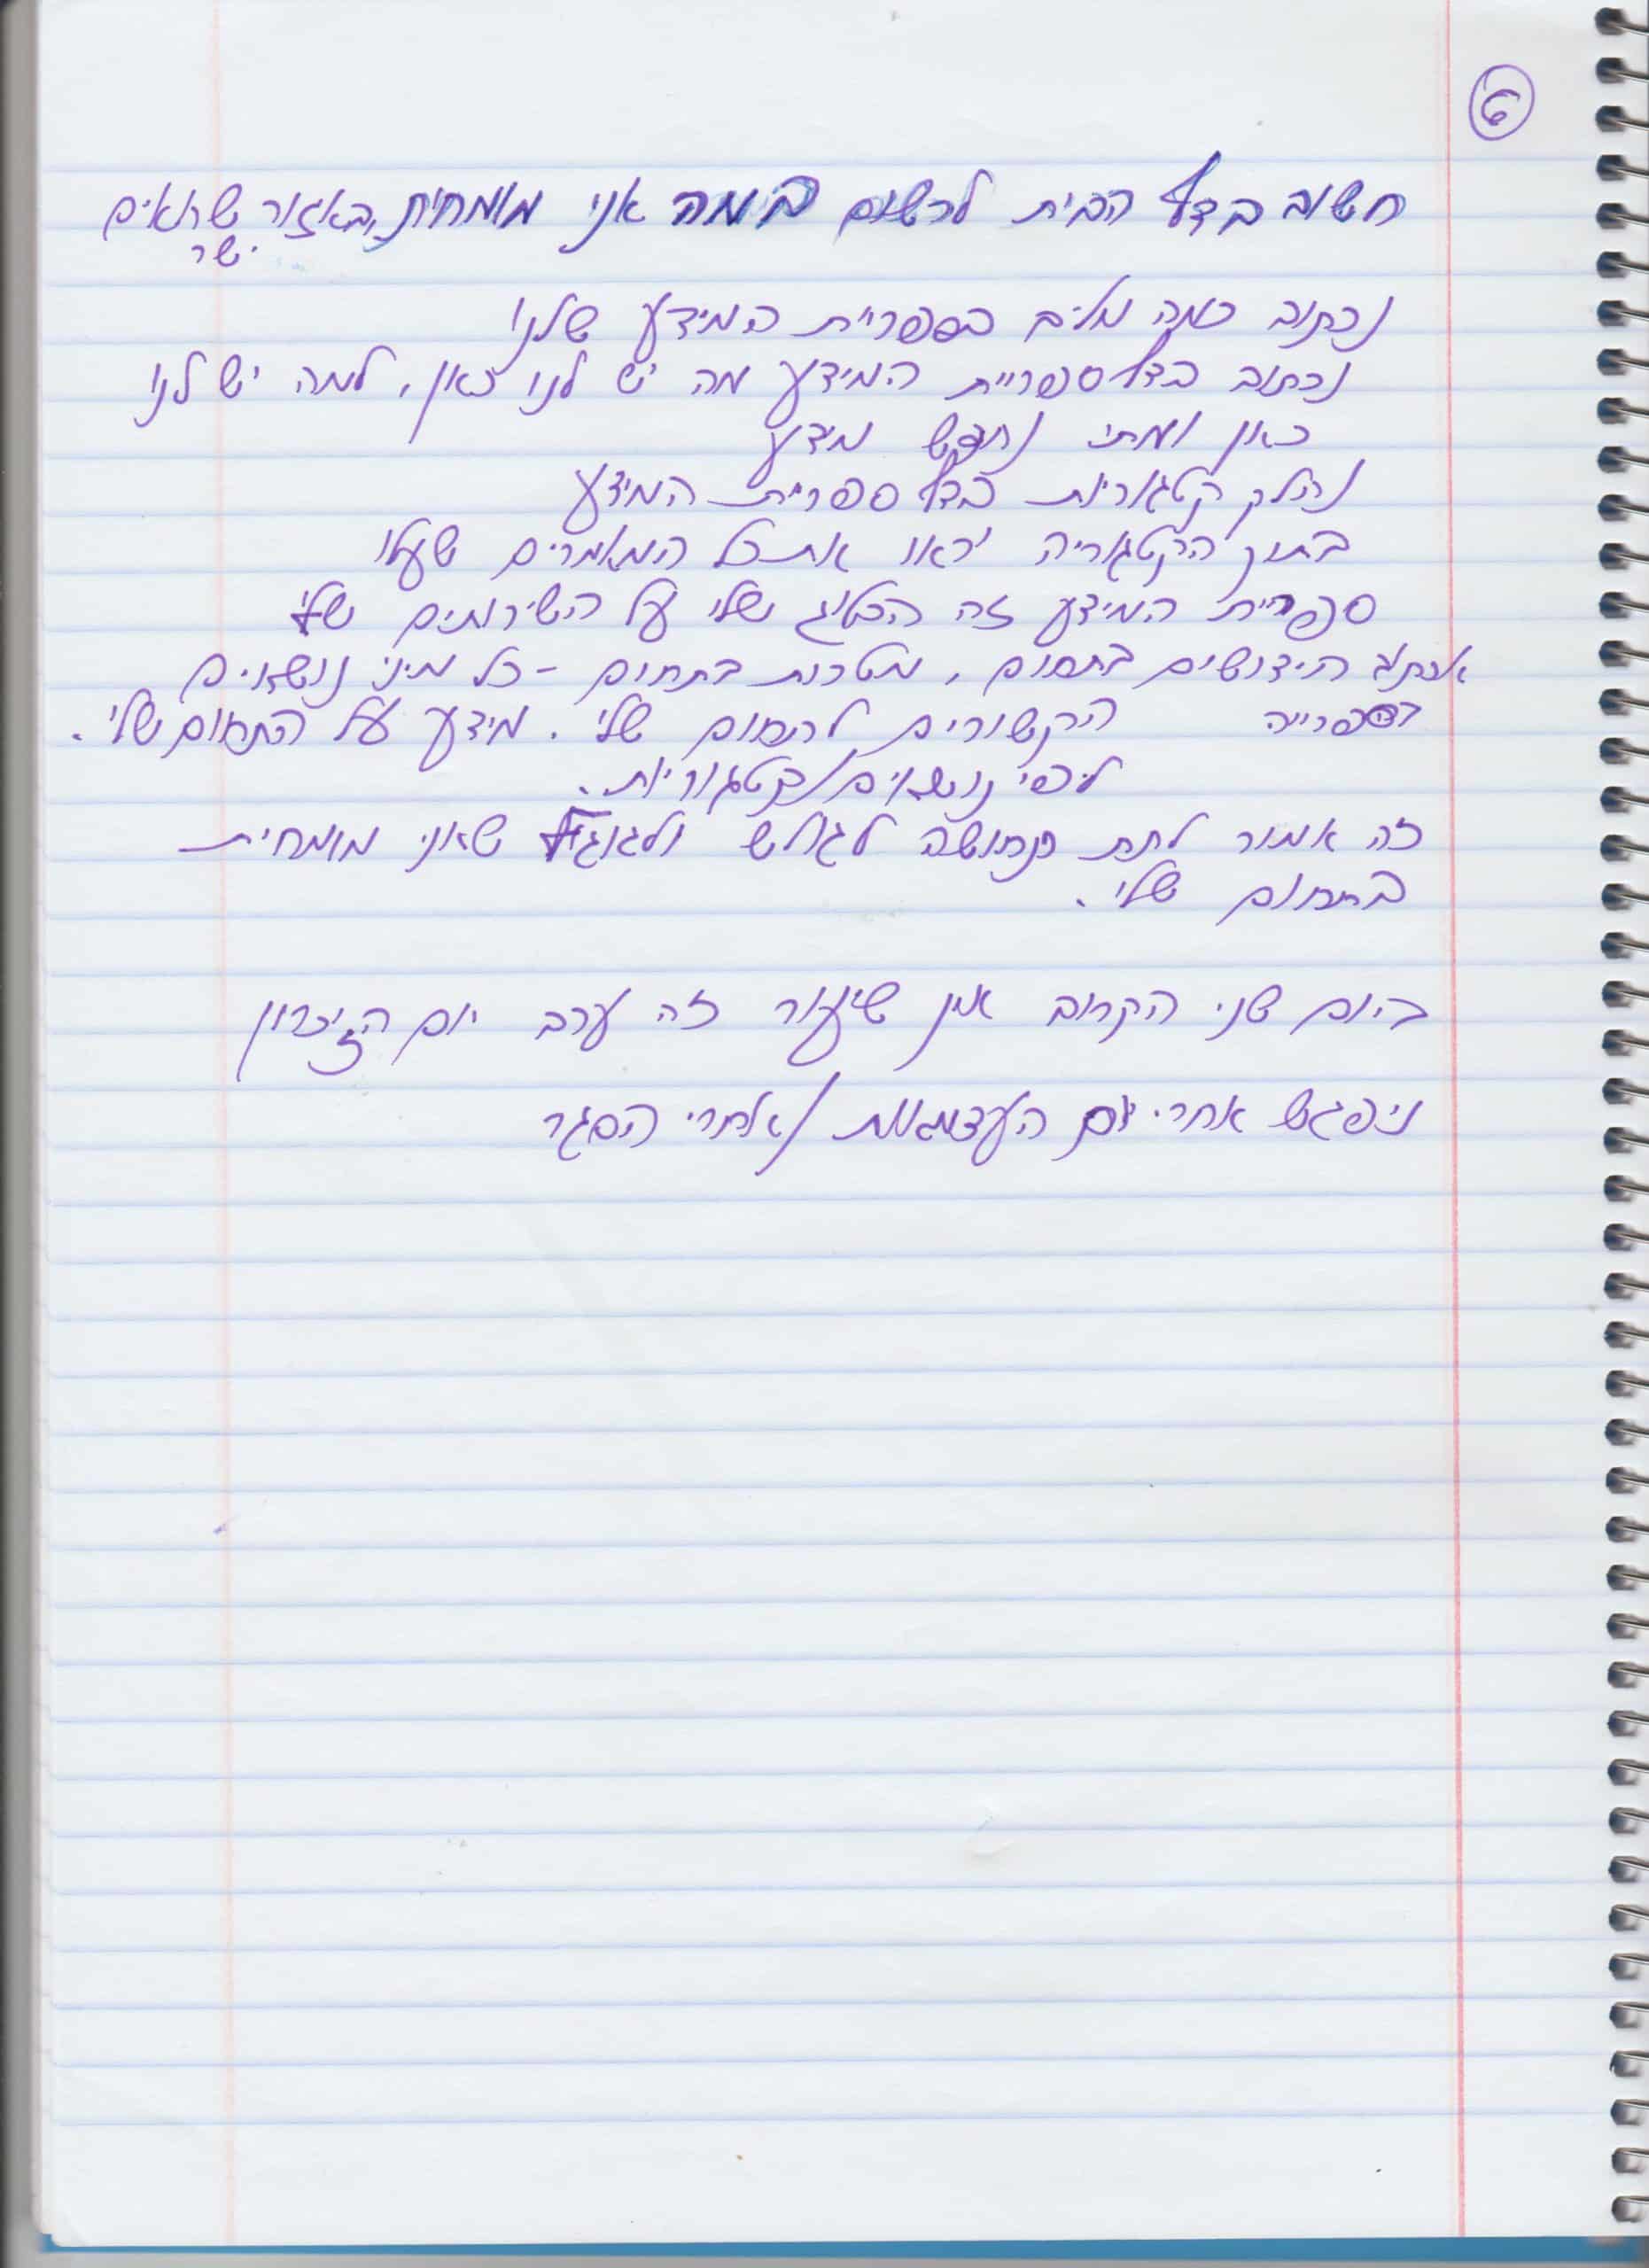 6
חשוב בדף הבית לרשום במה אני מומחית, באזור שרואים
ישר.
נכתוב כמה מלים בספריית המידע שלנו
נכתוב בדף ספריית המידע מה יש לנו כאן, למה יש לנו
כאן ומתי נחפש מידע
נחלק קטגוריות בדף ספריית המידע
בתוך הקטגוריה יראו את כל המאמרים שעלו
ספריית המידע זה הבלוג שלי על השירותים שלי
אכתוב חידושים בתחום, מטרות בתחום - כל מיני נושאים
בספרייה הקשורים לתחום שלי. מידע על התחום שלי.
לפי נושאים/קטגוריות.
זה אמור לתת תחושה לגולש ולגוגל שאני מומחית
בתחום שלי.
ביום שני הקרוב אין שיעור זה ערב יום הזיכרון
ניפגש אחרי יום העצמאות /אחרי הסגר